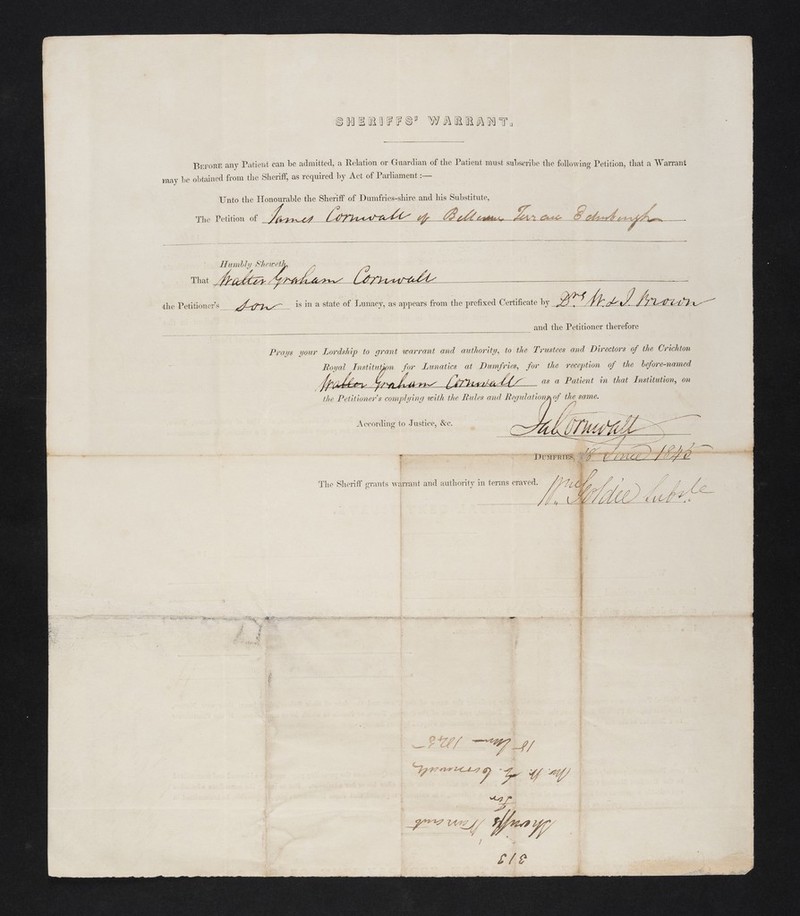 SHERIFFS' WARRANT.
BEFORE any Patient can be admitted, a Relation or Guardian of the Patient must subscribe the following Petition, that a Warrant
may be obtained from the Sheriff, as required by Act of Parliament:—
Unto the Honourable the Sheriff of Dumfries-shire and his Substitute,
The Petition of James Cornwall of Bellevue Terrace Edinburgh
Humbly Sheweth,
That Walter Graham Cornwall
the Petitioner's son is in a state of Lunacy, as appears from the prefixed Certificate by Drs W. & J. Brown
and the Petitioner therefore
Prays your Lordship to grant warrant and authority, to the Trustees and Directors of the Crichton
Royal Institution for Lunatics at Dumfries, for the reception of the before-named
Walter Graham Cornwall as a Patient in that Institution, on
the Petitioner's complying with the Rules and Regulations of the same.
According to Justice, &c.
Ja Cornwall
DUMFRIES, 18 June 1845
The Sheriff grants warrant and authority in terms craved.
Wm Goldie Subste
313
Sheriffs Warrant
for
Mr. W. G. Cornwall
18 June 1845